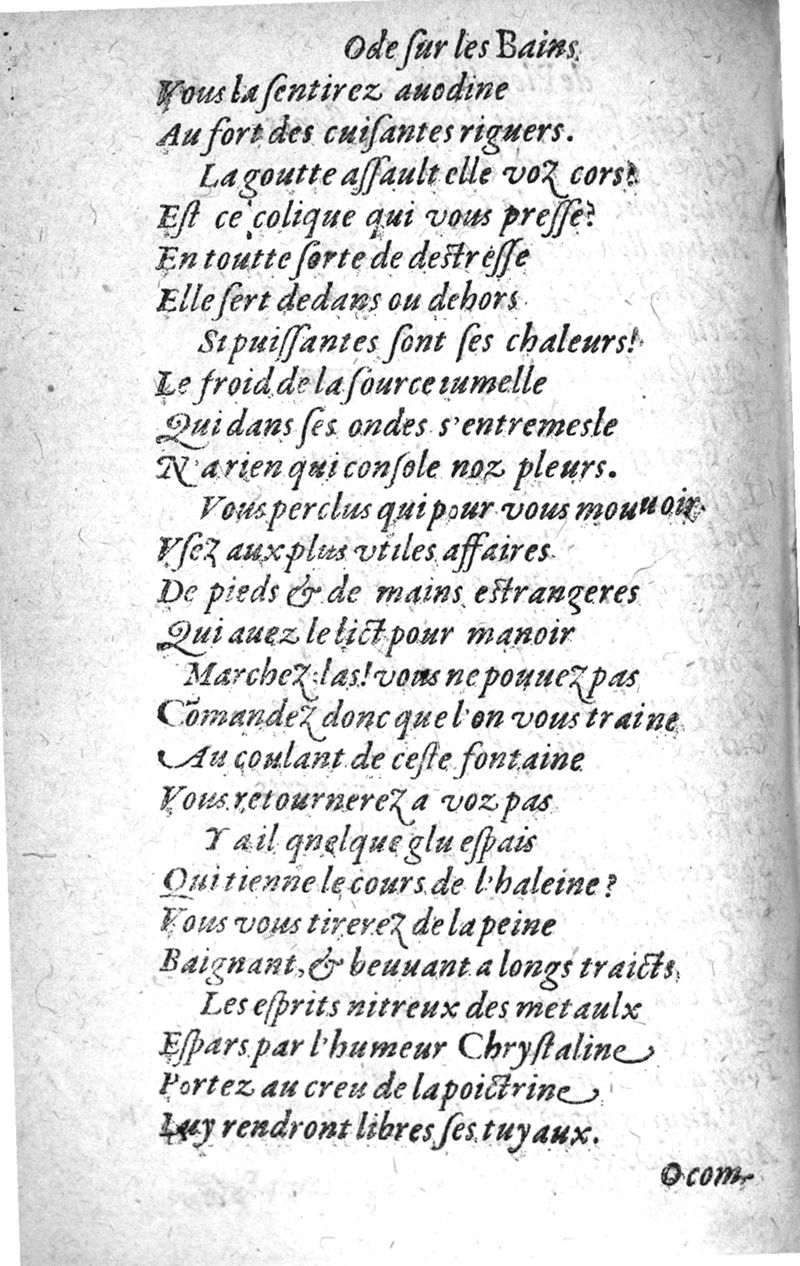 Ode ſur les Bains
Vous la ſentirez auodine
Au fort des cuiſantes riguers.
La goutte aſſault elle voz cors?
Eſt ce colique qui vous preſſe?
En toutte ſorte de deſtreſſe
Elle ſert dedans ou dehors
Si puiſſantes ſont ſes chaleurs!
Le froid de la ſource iumelle
Qui dans ſes ondes s'entremesle
N'a rien qui conſole noz pleurs.
Vous perclus qui pour vous mouuoir
Vſez aux plus vtiles affaires
De pieds & de mains eſtrangeres
Qui auez le lict pour manoir
Marchez: las! vous ne pouuez pas
Cõmandez donc que l'on vous traine
Au coulant de ceſte fontaine
Vous retournerez a voz pas
Y a il qnelque glu eſpais
Qui tienne le cours de l'haleine?
Vous vous tirerez de la peine
Baignant, & beuuant a longs traicts,
Les eſprits nitreux des metaulx
Eſpars par l'humeur Chryſtaline
Portez au creu de la poictrine
Luy rendront libres ſes tuyaux.
O com-